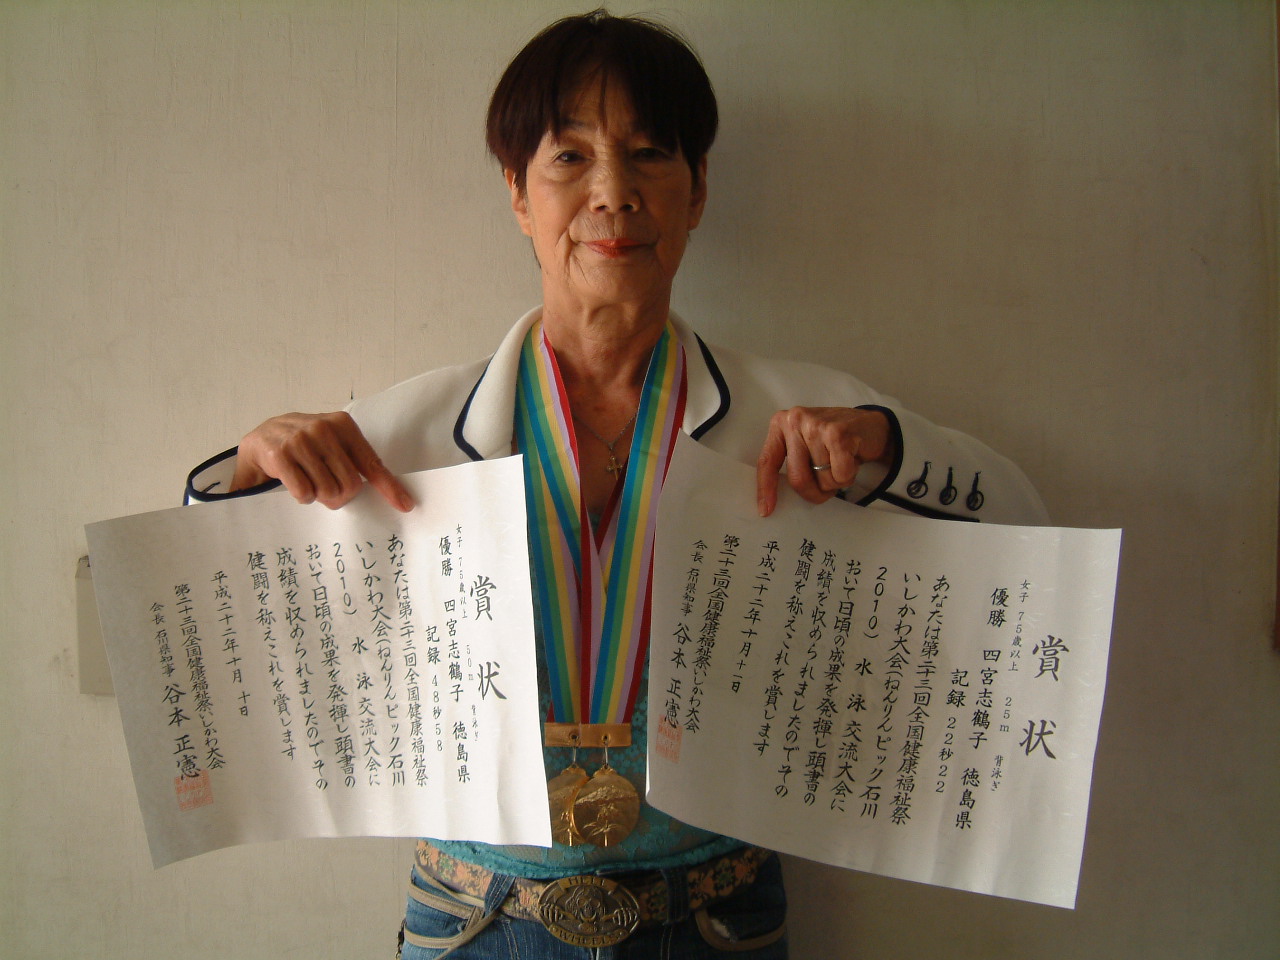 賞状
女子 75歳以上 50m 背泳ぎ
優勝 四宮志鶴子 徳島県
記録 48秒58
あなたは第二十三回全国健康福祉祭
いしかわ大会(ねんりんピック石川
2010) 水泳交流大会に
おいて日頃の成果を発揮し頭書の
成績を収められましたのでその
健闘を称えこれを賞します
平成二十二年十月十日
第二十三回全国健康福祉祭いしかわ大会
会長 石川県知事 谷本正憲
賞状
女子 75歳以上 25m 背泳ぎ
優勝 四宮志鶴子 徳島県
記録 22秒22
あなたは第二十三回全国健康福祉祭
いしかわ大会(ねんりんピック石川
2010) 水泳交流大会に
おいて日頃の成果を発揮し頭書の
成績を収められましたのでその
健闘を称えこれを賞します
平成二十二年十月十一日
第二十三回全国健康福祉祭いしかわ大会
会長 石川県知事 谷本正憲
HELL
WHEELS